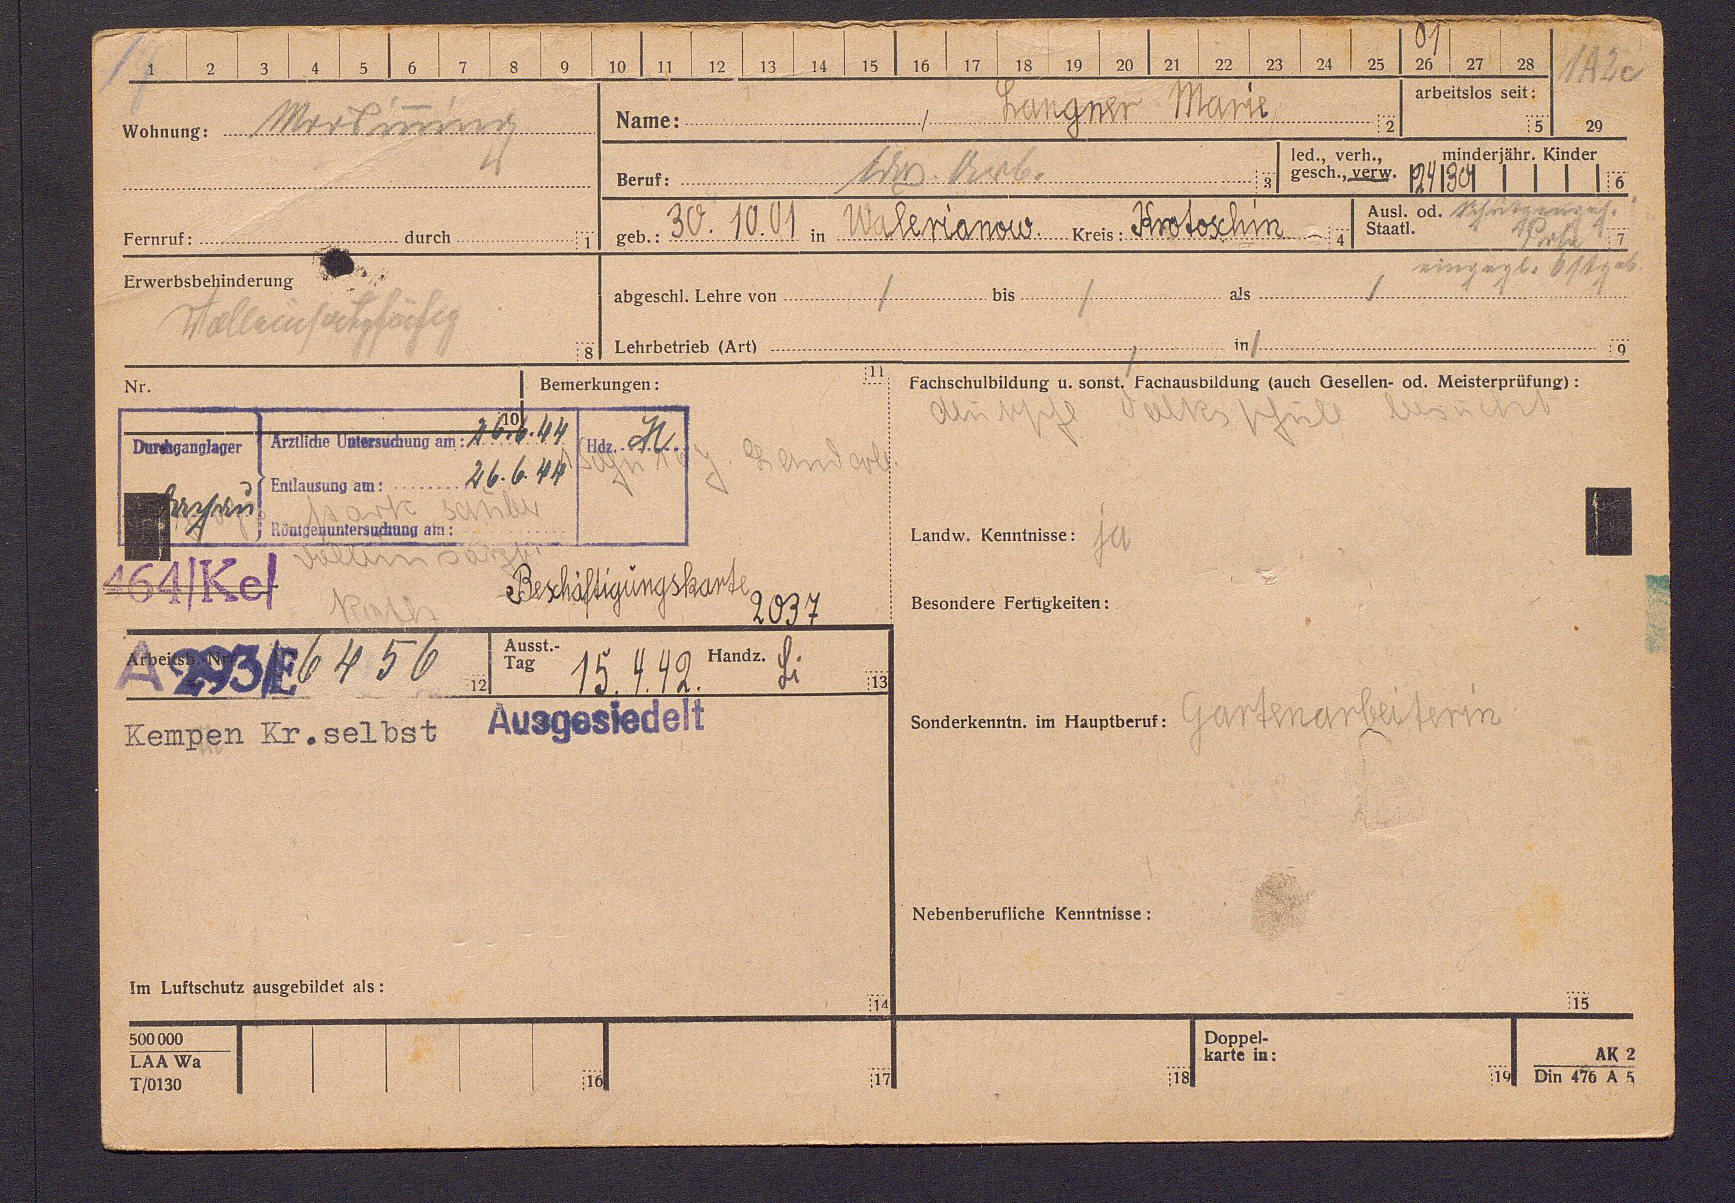 1 2 3 4 5 6 7 8 9 10 11 12 13 14 15 16 17 18 19 20 21 22 23 24 25 26 27 28
01
Wohnung:
Name: Langner Marie 2
arbeitslos seit: 5
29
Beruf: 3
led., verh., gesch., verw.
minderjähr. Kinder
24 30 6
Fernruf: durch 1
geb.: 30. 10. 01 in Walerianow Kreis: Krotoschin 4
Ausl. od. Staatl. Schutzangeh. 7
eingegl. Ostgeb.
Erwerbsbehinderung
Volleinsatzfähig
8
abgeschl. Lehre von / bis / als /
Lehrbetrieb (Art) in 9
Nr.
10
Bemerkungen: 11
Durchganglager
Ärztliche Untersuchung am: 26.6.44
Entlausung am: 26.6.44
Röntgenuntersuchung am:
Hdz.
464/Kel
Beschäftigungskarte
2037
Fachschulbildung u. sonst. Fachausbildung (auch Gesellen- od. Meisterprüfung):
deutsche Volksschule besucht
Landw. Kenntnisse: ja
Besondere Fertigkeiten:
Arbeitsb. Nr.
A 293/E 6456 12
Ausst.-Tag 15.4.42. Handz. Li 13
Kempen Kr.selbst Ausgesiedelt
Sonderkenntn. im Hauptberuf: Gartenarbeiterin
Nebenberufliche Kenntnisse:
Im Luftschutz ausgebildet als:
14
15
500 000
LAA Wa
T/0130
16
17
18
Doppel-
karte in:
19
AK 2
Din 476 A 5